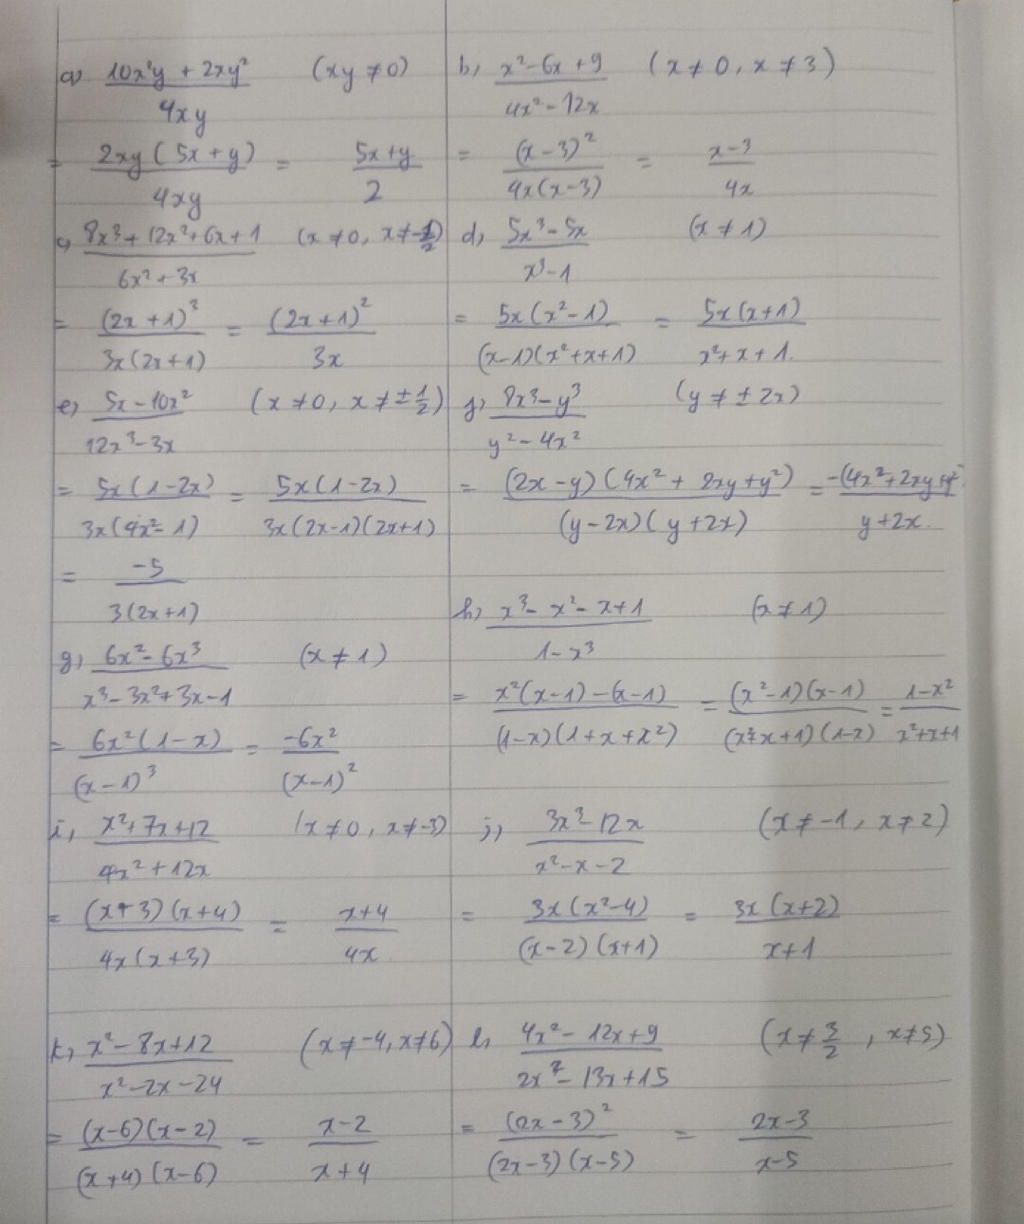 a, (10x²y + 2xy²)/(4xy) (xy ≠ 0)
= (2xy(5x+y))/(4xy) = (5x+y)/2
b, (x²-6x+9)/(4x²-12x) (x ≠ 0, x ≠ 3)
= ((x-3)²)/(4x(x-3)) = (x-3)/(4x)
c, (8x³+12x²+6x+1)/(6x²+3x) (x ≠ 0, x ≠ -1/2)
= ((2x+1)³)/(3x(2x+1)) = ((2x+1)²)/(3x)
d, (5x³-5x)/(x³-1) (x ≠ 1)
= (5x(x²-1))/((x-1)(x²+x+1)) = (5x(x+1))/(x²+x+1.)
e, (5x-10x²)/(12x³-3x) (x ≠ 0, x ≠ ±1/2)
= (5x(1-2x))/(3x(4x²-1)) = (5x(1-2x))/(3x(2x-1)(2x+1))
= (-5)/(3(2x+1))
f, (8x³-y³)/(y²-4x²) (y ≠ ±2x)
= ((2x-y)(4x²+2xy+y²))/((y-2x)(y+2x)) = (-(4x²+2xy+y²))/(y+2x.)
g, (6x²-6x³)/(x³-3x²+3x-1) (x ≠ 1)
= (6x²(1-x))/((x-1)³) = (-6x²)/((x-1)²)
h, (x³-x²-x+1)/(1-x³) (x ≠ 1)
= (x²(x-1)-(x-1))/((1-x)(1+x+x²)) = ((x²-1)(x-1))/((x²+x+1)(1-x)) = (1-x²)/(x²+x+1)
i, (x²+7x+12)/(4x²+12x) (x ≠ 0, x ≠ -3)
= ((x+3)(x+4))/(4x(x+3)) = (x+4)/(4x)
j, (3x³-12x)/(x²-x-2) (x ≠ -1, x ≠ 2)
= (3x(x²-4))/((x-2)(x+1)) = (3x(x+2))/(x+1)
k, (x²-8x+12)/(x²-2x-24) (x ≠ -4, x ≠ 6)
= ((x-6)(x-2))/((x+4)(x-6)) = (x-2)/(x+4)
l, (4x²-12x+9)/(2x²-13x+15) (x ≠ 3/2, x ≠ 5)
= ((2x-3)²)/((2x-3)(x-5)) = (2x-3)/(x-5)